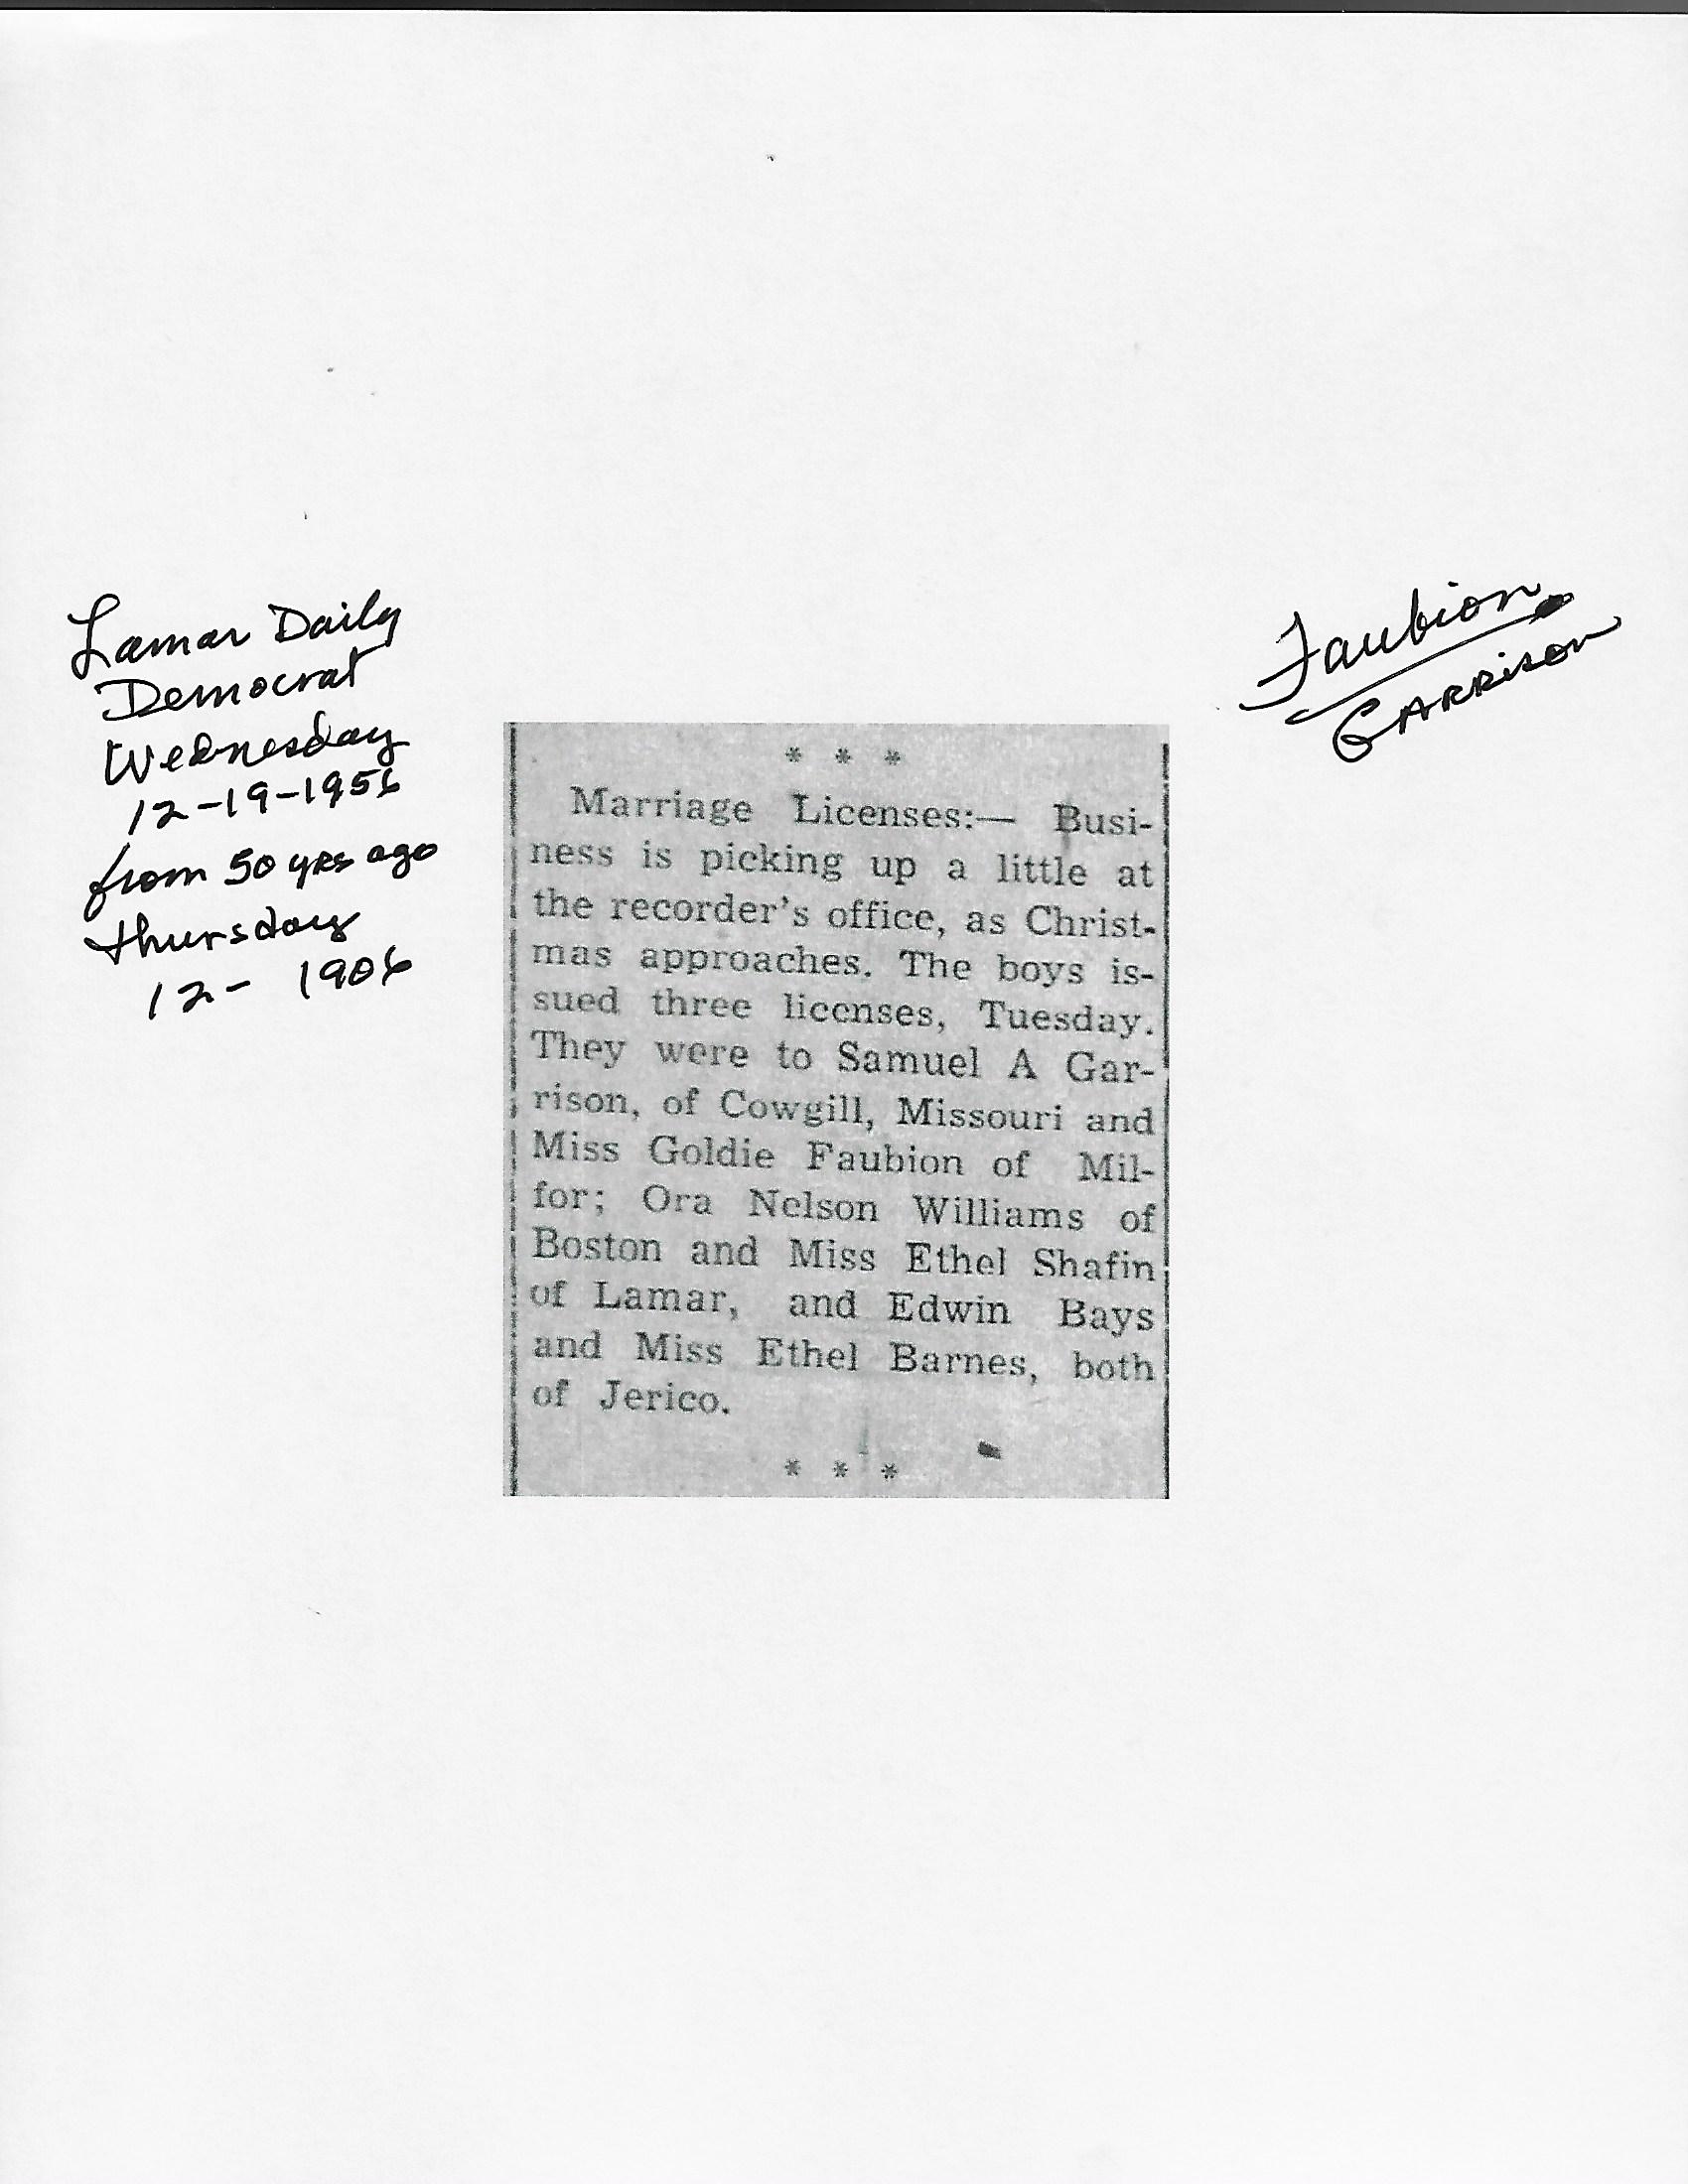 Lamar Daily
Democrat
Wednesday
12-19-1956
from 50 yrs ago
thursday
12- 1906
Faubion
GARRison
* * *
Marriage Licenses:— Busi-
ness is picking up a little at
the recorder's office, as Christ-
mas approaches. The boys is-
sued three licenses, Tuesday.
They were to Samuel A Gar-
rison, of Cowgill, Missouri and
Miss Goldie Faubion of Mil-
for; Ora Nelson Williams of
Boston and Miss Ethel Shafin
of Lamar, and Edwin Bays
and Miss Ethel Barnes, both
of Jerico.
* * *